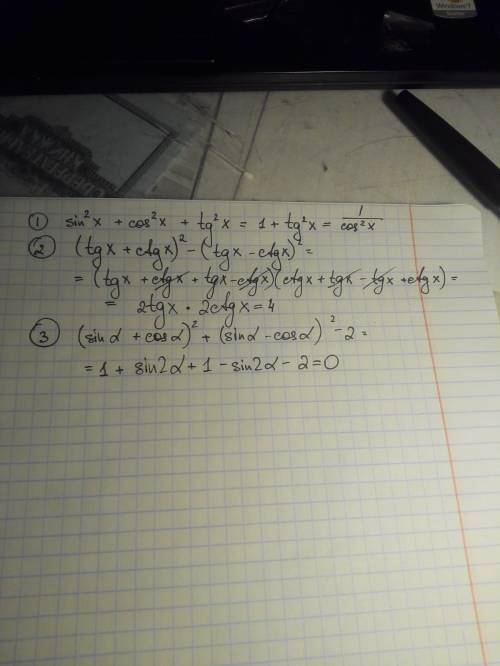 Windows 7
① sin²x + cos²x + tg²x = 1 + tg²x = 1/cos²x
② (tgx + ctgx)² − (tgx − ctgx)² =
= (tgx + ctgx + tgx − ctgx)(ctgx + tgx − tgx + ctgx) =
= 2tgx · 2ctgx = 4
③ (sinα + cosα)² + (sinα − cosα)² − 2 =
= 1 + sin2α + 1 − sin2α − 2 = 0